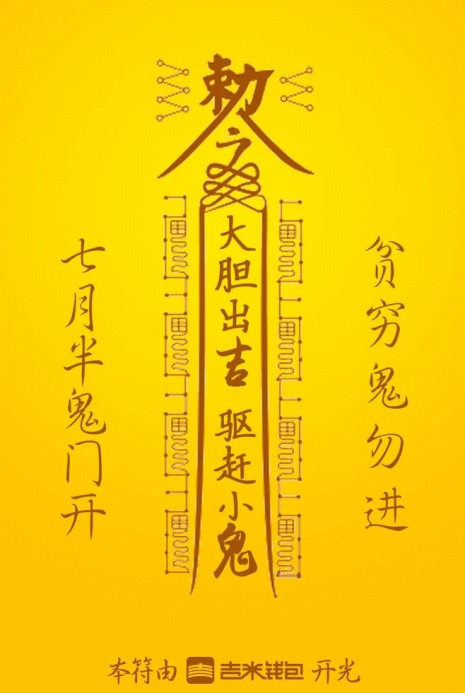 勅令
大胆出吉 驱赶小鬼
七月半鬼门开
贫穷鬼勿进
本符由 吉米钱包 开光